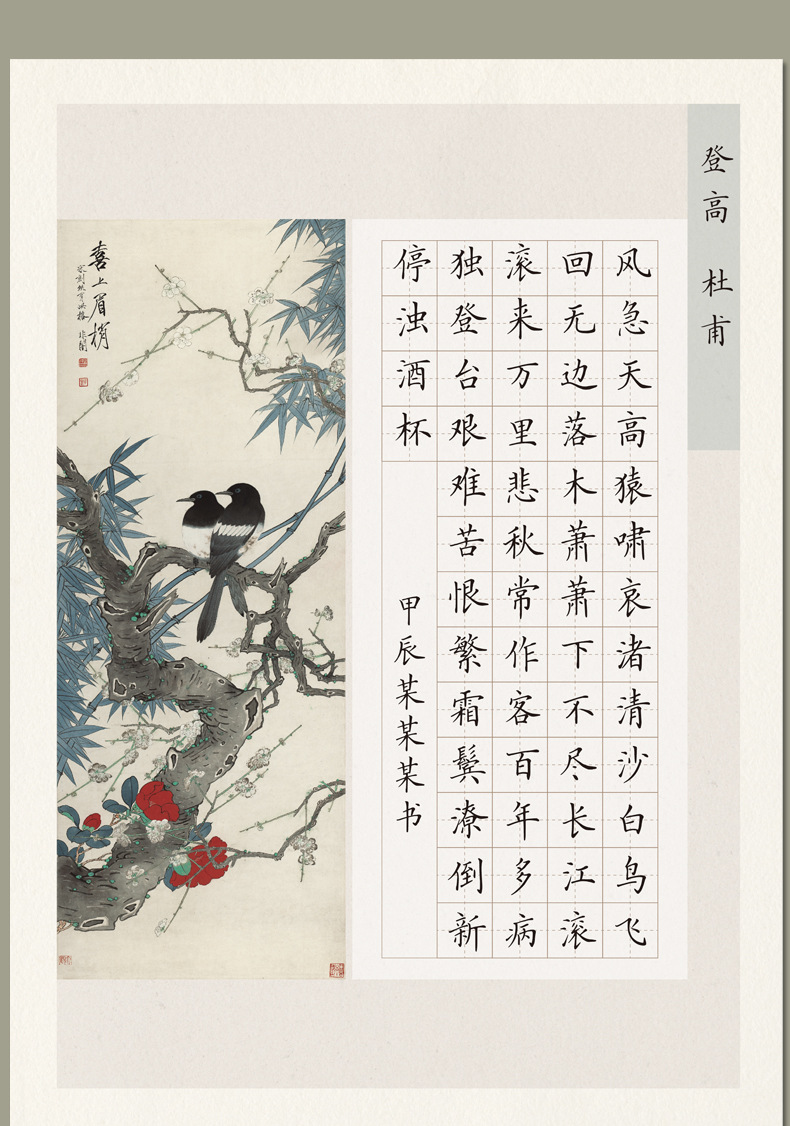 登高 杜甫
风急天高猿啸哀渚清沙白鸟飞
回无边落木萧萧下不尽长江滚
滚来万里悲秋常作客百年多病
独登台艰难苦恨繁霜鬓潦倒新
停浊酒杯
甲辰某某某书
喜上眉梢
非闇